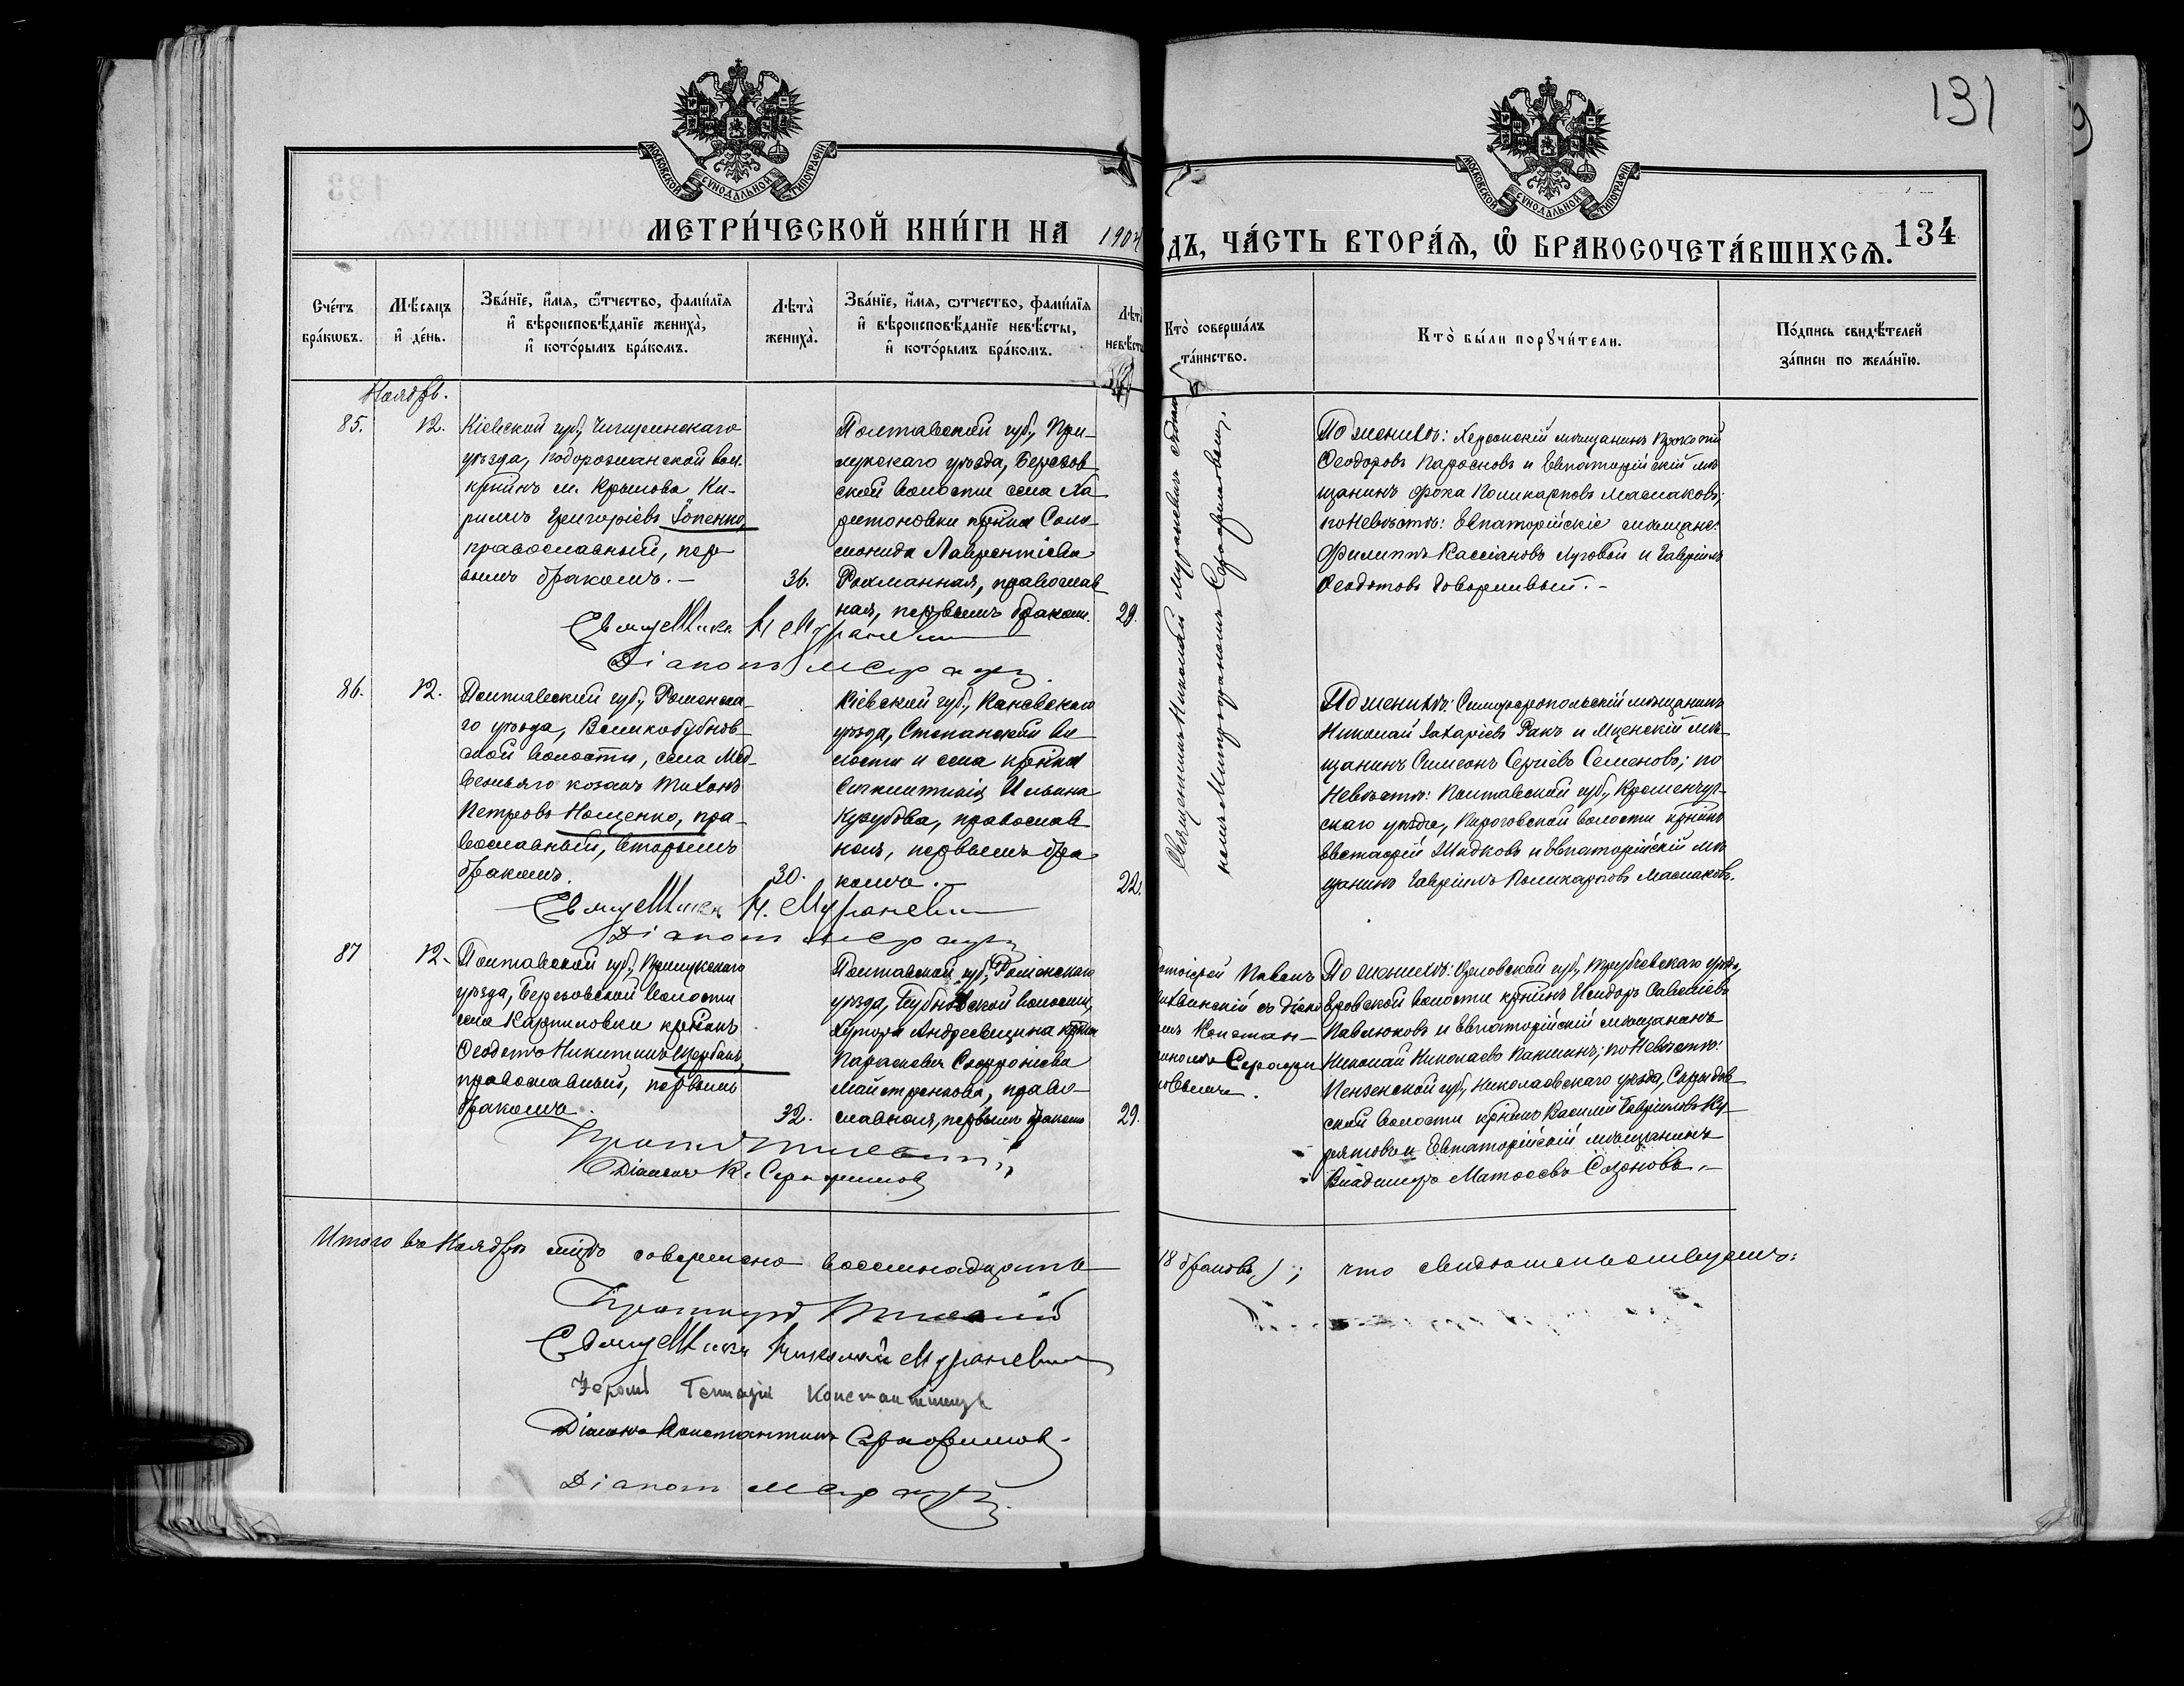 131
МОСКОВСКОЙ СѴНОДАЛЬНОЙ ТИПОГРАФІИ
МОСКОВСКОЙ СѴНОДАЛЬНОЙ ТИПОГРАФІИ
МЕТРИ́ЧЕСКОЙ КНИ́ГИ НА 1904
ДЪ, ЧА́СТЬ ВТОРА́Я, Ѿ БРАКОСОЧЕТА́ВШИХСѦ. 134
Сче́тъ бра́кѡвъ.
Мѣ́сяцъ и҆ де́нь.
Зва́нїе, и҆́мя, ѻ҆́тчество, фами́лїя
и҆ вѣроисповѣ́данїе жениха̀,
и҆ кото́рымъ бра́комъ.
Лѣта̀ жениха̀.
Зва́нїе, и҆́мя, ѻ҆́тчество, фами́лїя
и҆ вѣроисповѣ́данїе невѣ́сты,
и҆ кото́рымъ бра́комъ.
Лѣта̀ невѣ́сты
Кто̀ соверша́лъ
та́инство.
Кто̀ бы́ли порꙋчи́тели.
По́дпись свидѣ́телей
за́писи по жела́нїю.
Ноябрь.
85.
12.
Кіевской губ., Чигиринскаго
уѣзда, Подорожанской вол.
крѣинъ м. Крылова Ки-
риллъ Григоріевъ
православный, пер-
вымъ бракомъ.-
36.
Полтавской губ., При-
лукскаго уѣзда, Березов-
ской волости села Ха-
ритоновки крѣнка Соло-
монида Лаврентіева
православ-
ная, первымъ бракомъ.
29.
Священникъ Николай Мураневичъ съ діако-
номъ Митрофаномъ
По женихѣ: Херсонскій мѣщанинъ
Ѳеодоровъ и Евпаторійскій мѣ-
щанинъ Фока Поликарповъ Маслаковъ;
по невѣстѣ: Евпаторійскіе мѣщане:
Филиппъ Кассіановъ Луговой и Гавріилъ
Ѳеодотовъ Говорливый.-
Н. Мураневичъ
Діаконъ
86.
12.
Полтавской губ., Роменска-
го уѣзда, Великобубнов-
ской волости, села Мед-
вежьяго козакъ Тихонъ
Петровъ Нощенко, пра-
вославный, вторымъ
бракомъ.
30.
Кіевской губ., Каневскаго
уѣзда, Степанской во-
лости и села крѣнка
Ильина
православ-
ная, первымъ бра-
комъ.-
22.
По женихѣ: Симферопольскій мѣщанинъ
Николай Захаріевъ Ракъ и Мценскій мѣ-
щанинъ Симеонъ Сергіевъ Семеновъ; по
невѣстѣ: Полтавской губ., Кременчуг-
скаго уѣзда, Пироговской волости крѣинъ
Евстафій Шидковъ и Евпаторійскій мѣ-
щанинъ Гавріилъ Поликарповъ Маслаковъ.
Н. Мураневичъ
Діаконъ
87
12-
Полтавской губ., Прилукскаго
уѣзда, Березовской волости
села Карпиловки крѣинъ
Ѳеодотъ Никитинъ Щербань,
православный, первымъ
бракомъ.
32.
Полтавской губ., Роменскаго
уѣзда, Бубновской волости,
хутора Андреевщина крѣнка
Параскева Софроніева
Майстренкова, право-
славная, первымъ бракомъ
29.
Павелъ
съ діако
Констан-
Серафи
мовымъ.
По женихѣ: Орловской губ., Трубчевскаго уѣзда,
волости крѣинъ Исидоръ Савеліевъ
Павлюковъ и Евпаторійскій мѣщанинъ
Николай Николаевъ по невѣстѣ:
Пензенской губ., Николаевскаго уѣзда,
ской волости крѣинъ Василій Гавріиловъ Ку-
и Евпаторійскій мѣщанинъ
Владимиръ Матѳеевъ Сазоновъ.-
Діаконъ К. Серафимовъ
Итого въ Ноябрѣ мцѣ совершено восемнадцать
18 браковъ); что свидѣтельствуемъ:
Николай Мураневичъ
Діаконъ Константинъ Серафимовъ
Діаконъ